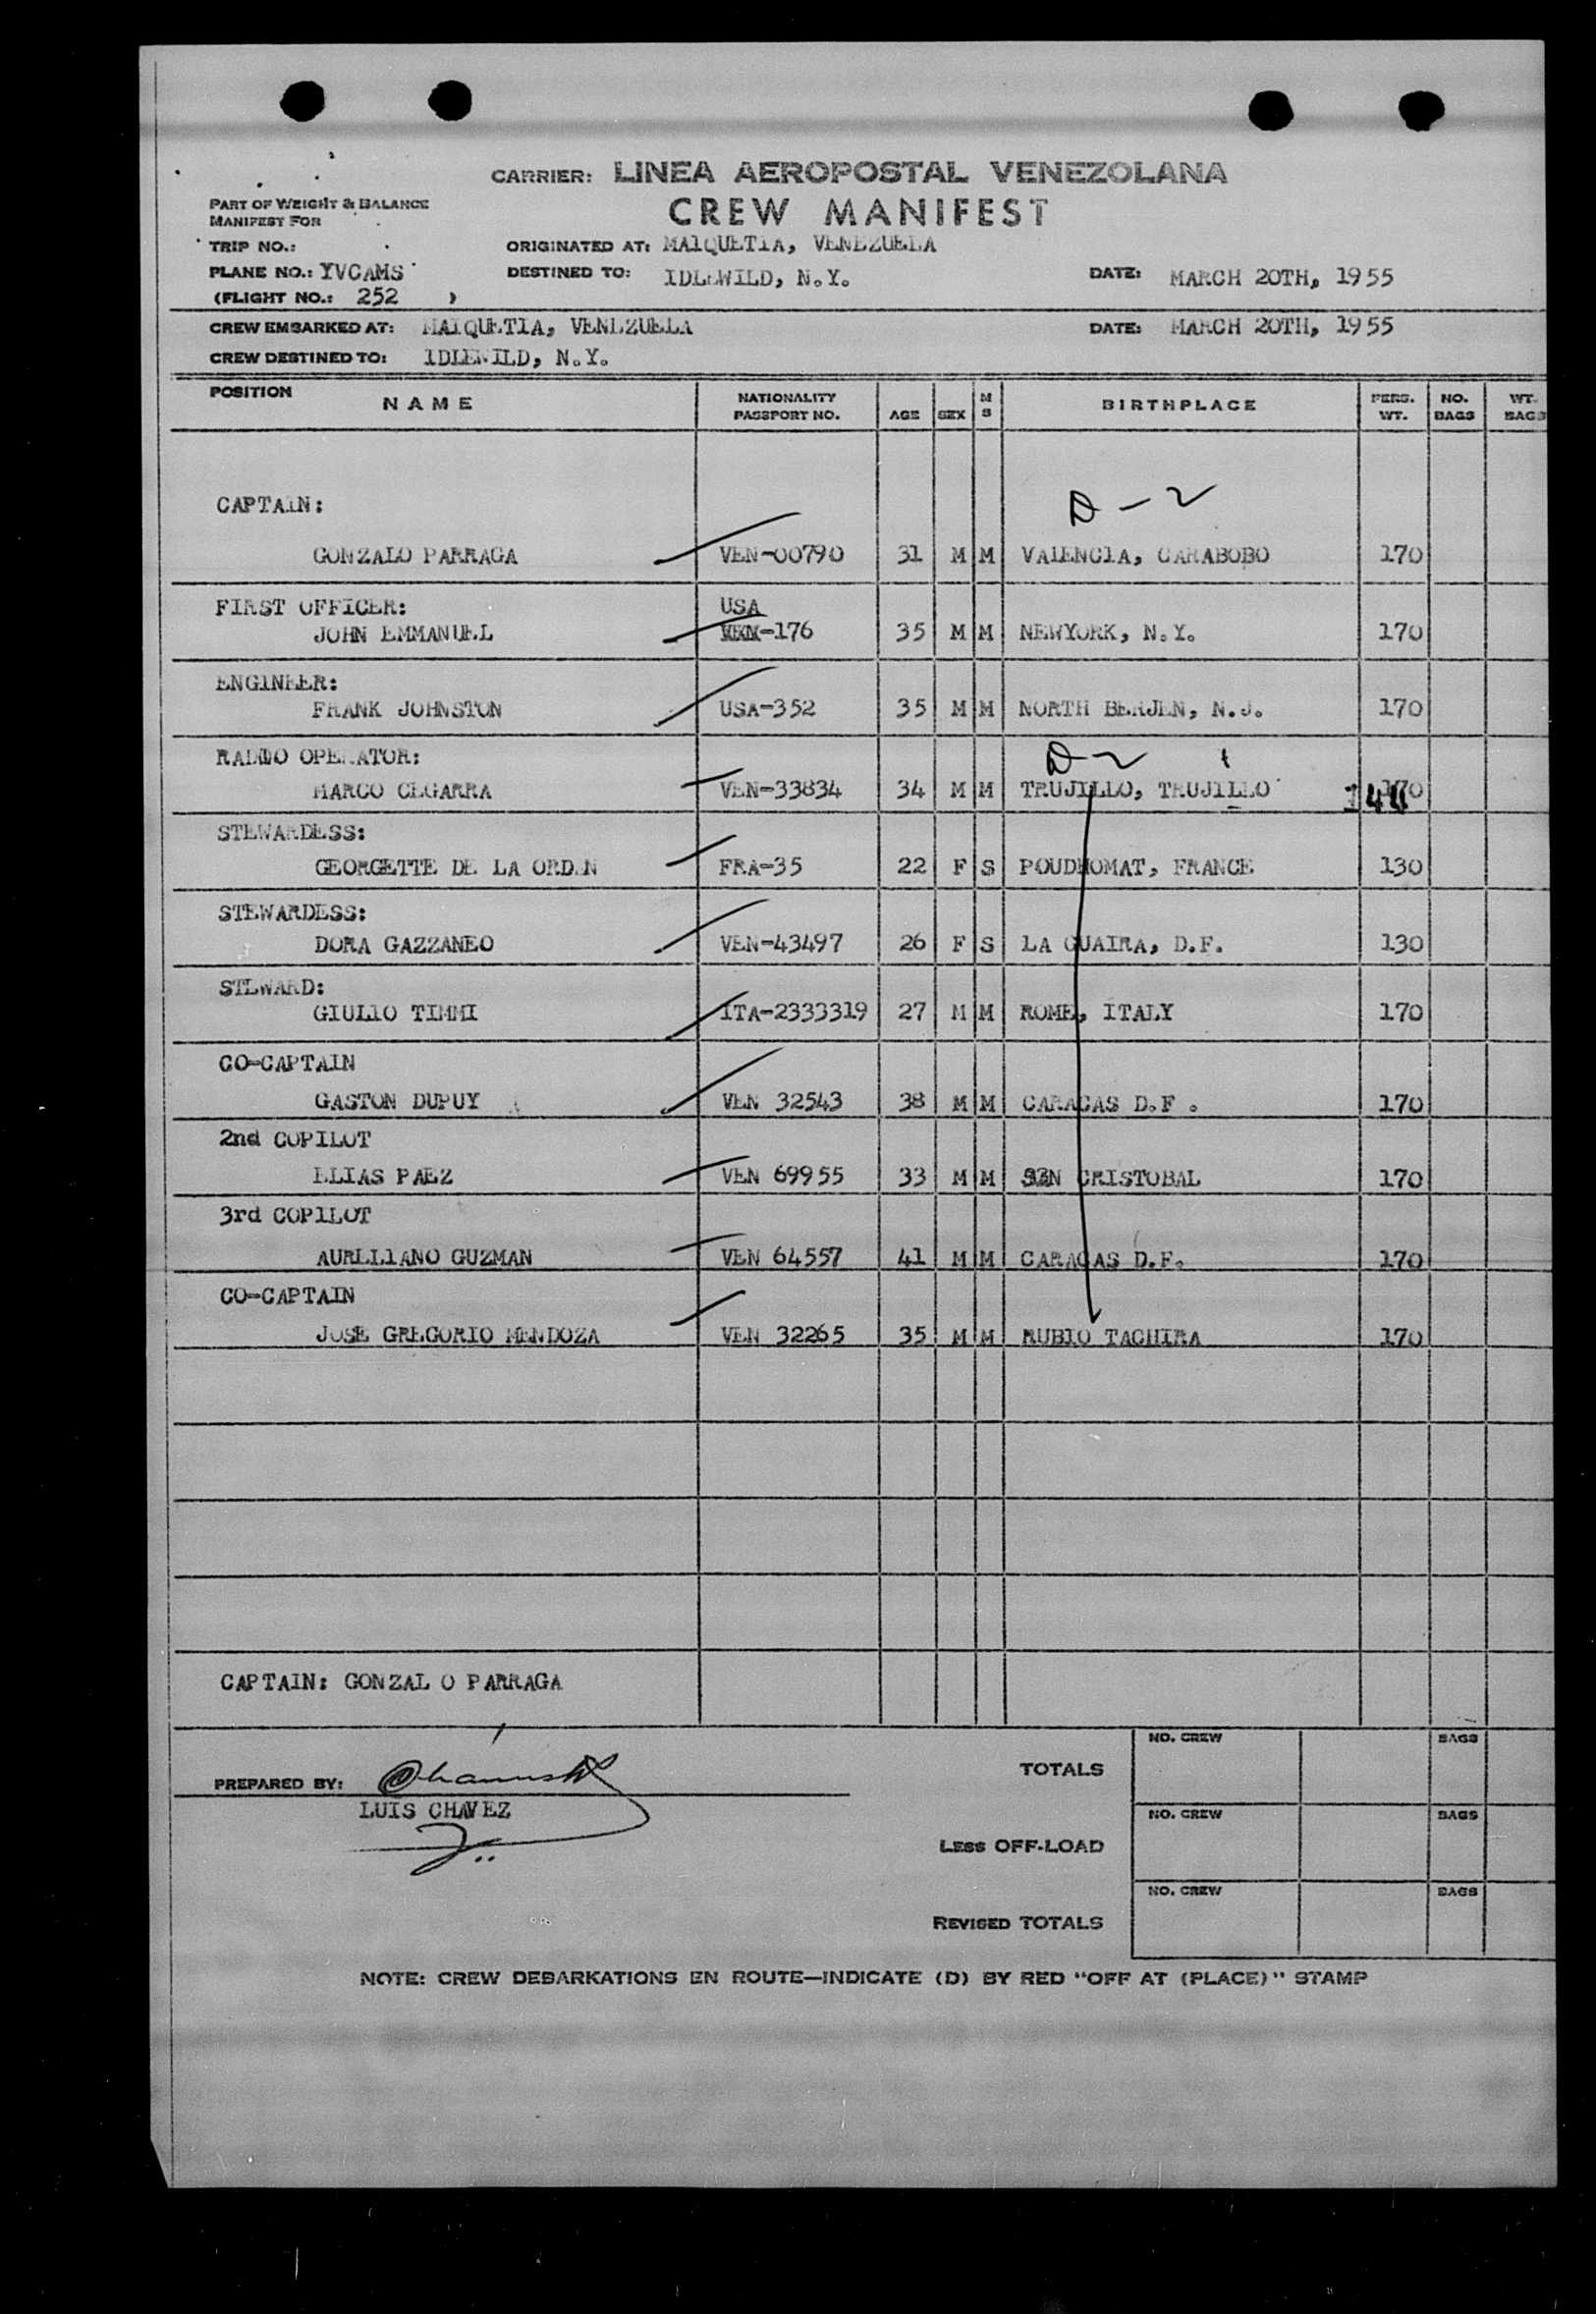 CARRIER: LINEA AEROPOSTAL VENEZOLANA
PART OF WEIGHT & BALANCE
MANIFEST FOR
CREW MANIFEST
TRIP NO.: ORIGINATED AT: MAIQUETIA, VENEZUELA
PLANE NO.: YVCAMS DESTINED TO: IDLEWILD, N.Y. DATE: MARCH 20TH, 1955
(FLIGHT NO.: 252 )
CREW EMBARKED AT: MAIQUETIA, VENEZUELA DATE: MARCH 20TH, 1955
CREW DESTINED TO: IDLEWILD, N.Y.
POSITION NAME NATIONALITY PASSPORT NO. AGE SEX M S BIRTHPLACE PERS. WT. NO. BAGS WT. BAGS
CAPTAIN: D-2
GONZALO PARRAGA VEN-00790 31 M M VALENCIA, CARABOBO 170
FIRST OFFICER: USA
JOHN EMMANUEL VEN-176 35 M M NEWYORK, N.Y. 170
ENGINEER:
FRANK JOHNSTON USA-352 35 M M NORTH BERJEN, N.J. 170
RADIO OPERATOR: D-2
MARCO CEGARRA VEN-33834 34 M M TRUJILLO, TRUJILLO 170
STEWARDESS:
GEORGETTE DE LA ORDEN FRA-35 22 F S POUDHOMAT, FRANCE 130
STEWARDESS:
DORA GAZZANEO VEN-43497 26 F S LA GUAIRA, D.F. 130
STEWARD:
GIULIO TIMMI ITA-2333319 27 M M ROME, ITALY 170
CO-CAPTAIN
GASTON DUPUY VEN 32543 38 M M CARACAS D.F. 170
2nd COPILOT
ELIAS PAEZ VEN 69955 33 M M SAN CRISTOBAL 170
3rd COPILOT
AURELIANO GUZMAN VEN 64557 41 M M CARACAS D.F. 170
CO-CAPTAIN
JOSE GREGORIO MENDOZA VEN 32265 35 M M RUBIO TACHIRA 170
CAPTAIN: GONZAL O PARRAGA
NO. CREW BAGS
TOTALS
PREPARED BY:
LUIS CHAVEZ
NO. CREW BAGS
LESS OFF-LOAD
NO. CREW BAGS
REVISED TOTALS
NOTE: CREW DEBARKATIONS EN ROUTE—INDICATE (D) BY RED "OFF AT (PLACE)" STAMP